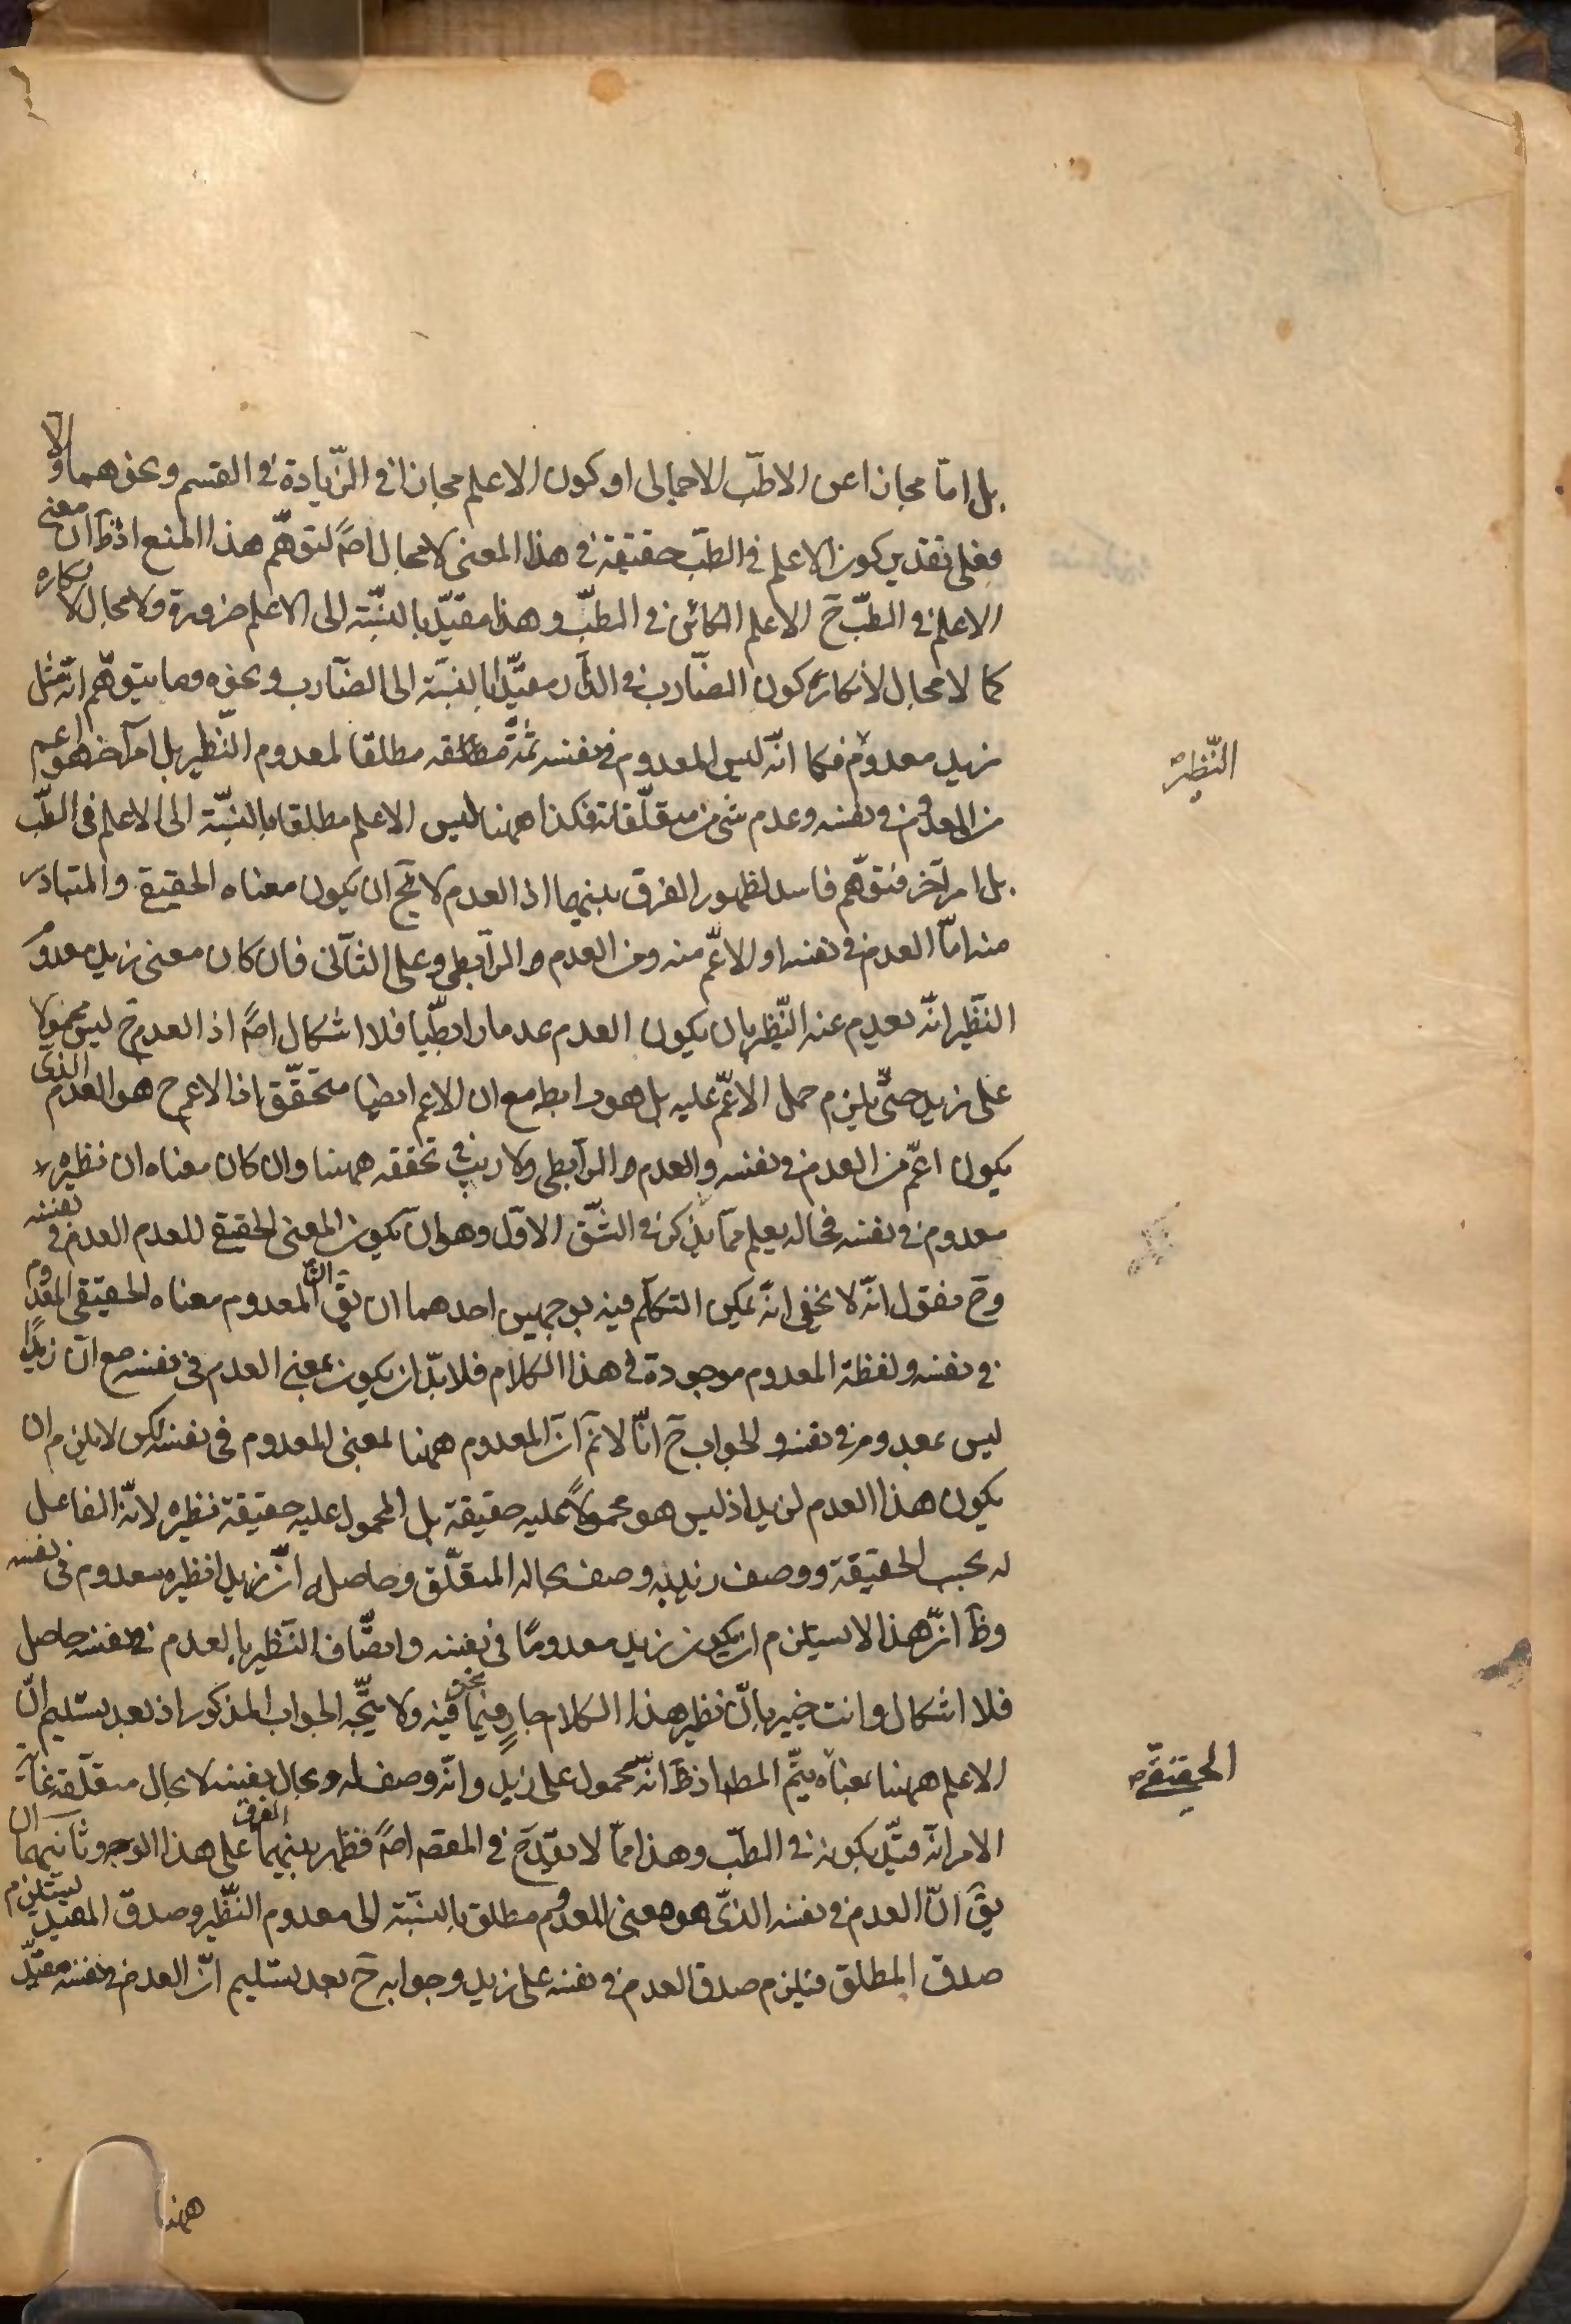 بل امّا مجازا عن الاطبّ الاجمالى او كون الاعلم مجازا فى الزّيادة فى القسم ونحوهما والّا
فعلى تقدير كون الاعلم فى الطبّ حقيقة فى هذا المعنى لا مجال اصًلتوهّم هذا المنع اذ ظَ ان معنى
الاعلم فى الطبّ حَ الاعلم الكائن فى الطبّ وهذا مقيّد بالنسبة الى الاعلم ضرورة ولا مجال لانكاره
كما لا مجال لانكار كون الضّارب فى الدّار مقيّدا بالنسبة الى الضّارب ونحوه وما يتوهّم انّه مثل
زيد معدوم فكما انّه ليس المعدوم فى نفسه ثمّة مطلقا لمعدوم النّظير بل امر آخر هو اعم
النّظير
من المعدوم فى نفسه وعدم شئ من متعلّقاته فكذا ههنا ليس الاعلم مطلقا بالنسبة الى الاعلم فى الطبّ
بل امر آخر فتوهّم فاسد لظهور الفرق بينهما اذ العدم لا يخ ان يكون معناه الحقيقى والمتبادر
منه امّا العدم فى نفسه او الاعّم منه ومن العدم الرّابطى وعلى الثّانى فان كان معنى زيد معدوم
النظير انّه يعدم عنه النّظير بان يكون العدم عدما رابطّيا فلا اشكال اصًا اذ العدم حَ ليس محمولا
على زيد حتّى يلزم حمل الاعّم عليه بل هو رابط مع ان الاعم ايضا متحقّق اذ الاعم حَ هو العدم الذى
يكون اعّم من العدم فى نفسه والعدم الرّابطى ولا ريب فى تحققه ههنا وان كان معناه ان نظيره
معدوم فى نفسه فحاله يعلم ممّا يذكر فى الشّق الاوّل وهو ان يكون المعنى الحقيقى للعدم العدم فى نفسه
وحَ فنقول انّه لا يخفى انّه يمكن التكلّم فيه بوجهين احدهما ان يقَ انّ المعدوم معناه الحقيقى المعدوم
فى نفسه ولفظة المعدوم موجودة فى هذا الكلام فلا بدّ ان يكون بمعنى العدم فى نفسه مع انّ زيدًا
ليس بمعدوم فى نفسه والجواب حَ انّا لا نَم انّ المعدوم ههنا لمعنى المعدوم فى نفسه لكن لا يلزم ان
يكون هذا العدم لزيد اذ ليس هو محمولًا عليه حقيقة بل المحمول عليه حقيقة نظيره لانّه الفاعل
له بحسب الحقيقة ووصف زيد به وصف بحاله المتعلّق وحاصله انّ زيدا نظيره معدوم فى نفسه
وظَ انّ هذا لا يستلزم ان يكون زيد معدومًا فى نفسه واتصّاف النّظير بالعدم فى نفسه حاصل
فلا اشكال وانت خبير بانّ نظير هذا الكلام جارٍ فيما نحن فيه ولا يتّجه الجواب المذكور اذ بعد تسليم انّ
الاعلم ههنا بمعناه يتّم المطه اذ ظَ انّه محمول على زيد وانّه وصف له وبحال نفسه لا بحال متعلّقه غاية
الحقيقىّ
الامر انّه قيّد بكونه فى الطبّ وهذا ممّا لا يقدح فى المقصَ اصًا فظهر الفرق بينهما على هذا الوجه وثانيهما ان
يقَ انّ العدم فى نفسه الذّى هو معنى المعدوم مطلق بالنسبة الى معدوم النّظير وصدق المقيد يستلزم
صدق المطلق فيلزم صدق العدم فى نفسه على زيد وجوابه حَ بعد تسليم انّ العدم فى نفسه مقيّد
ههنا